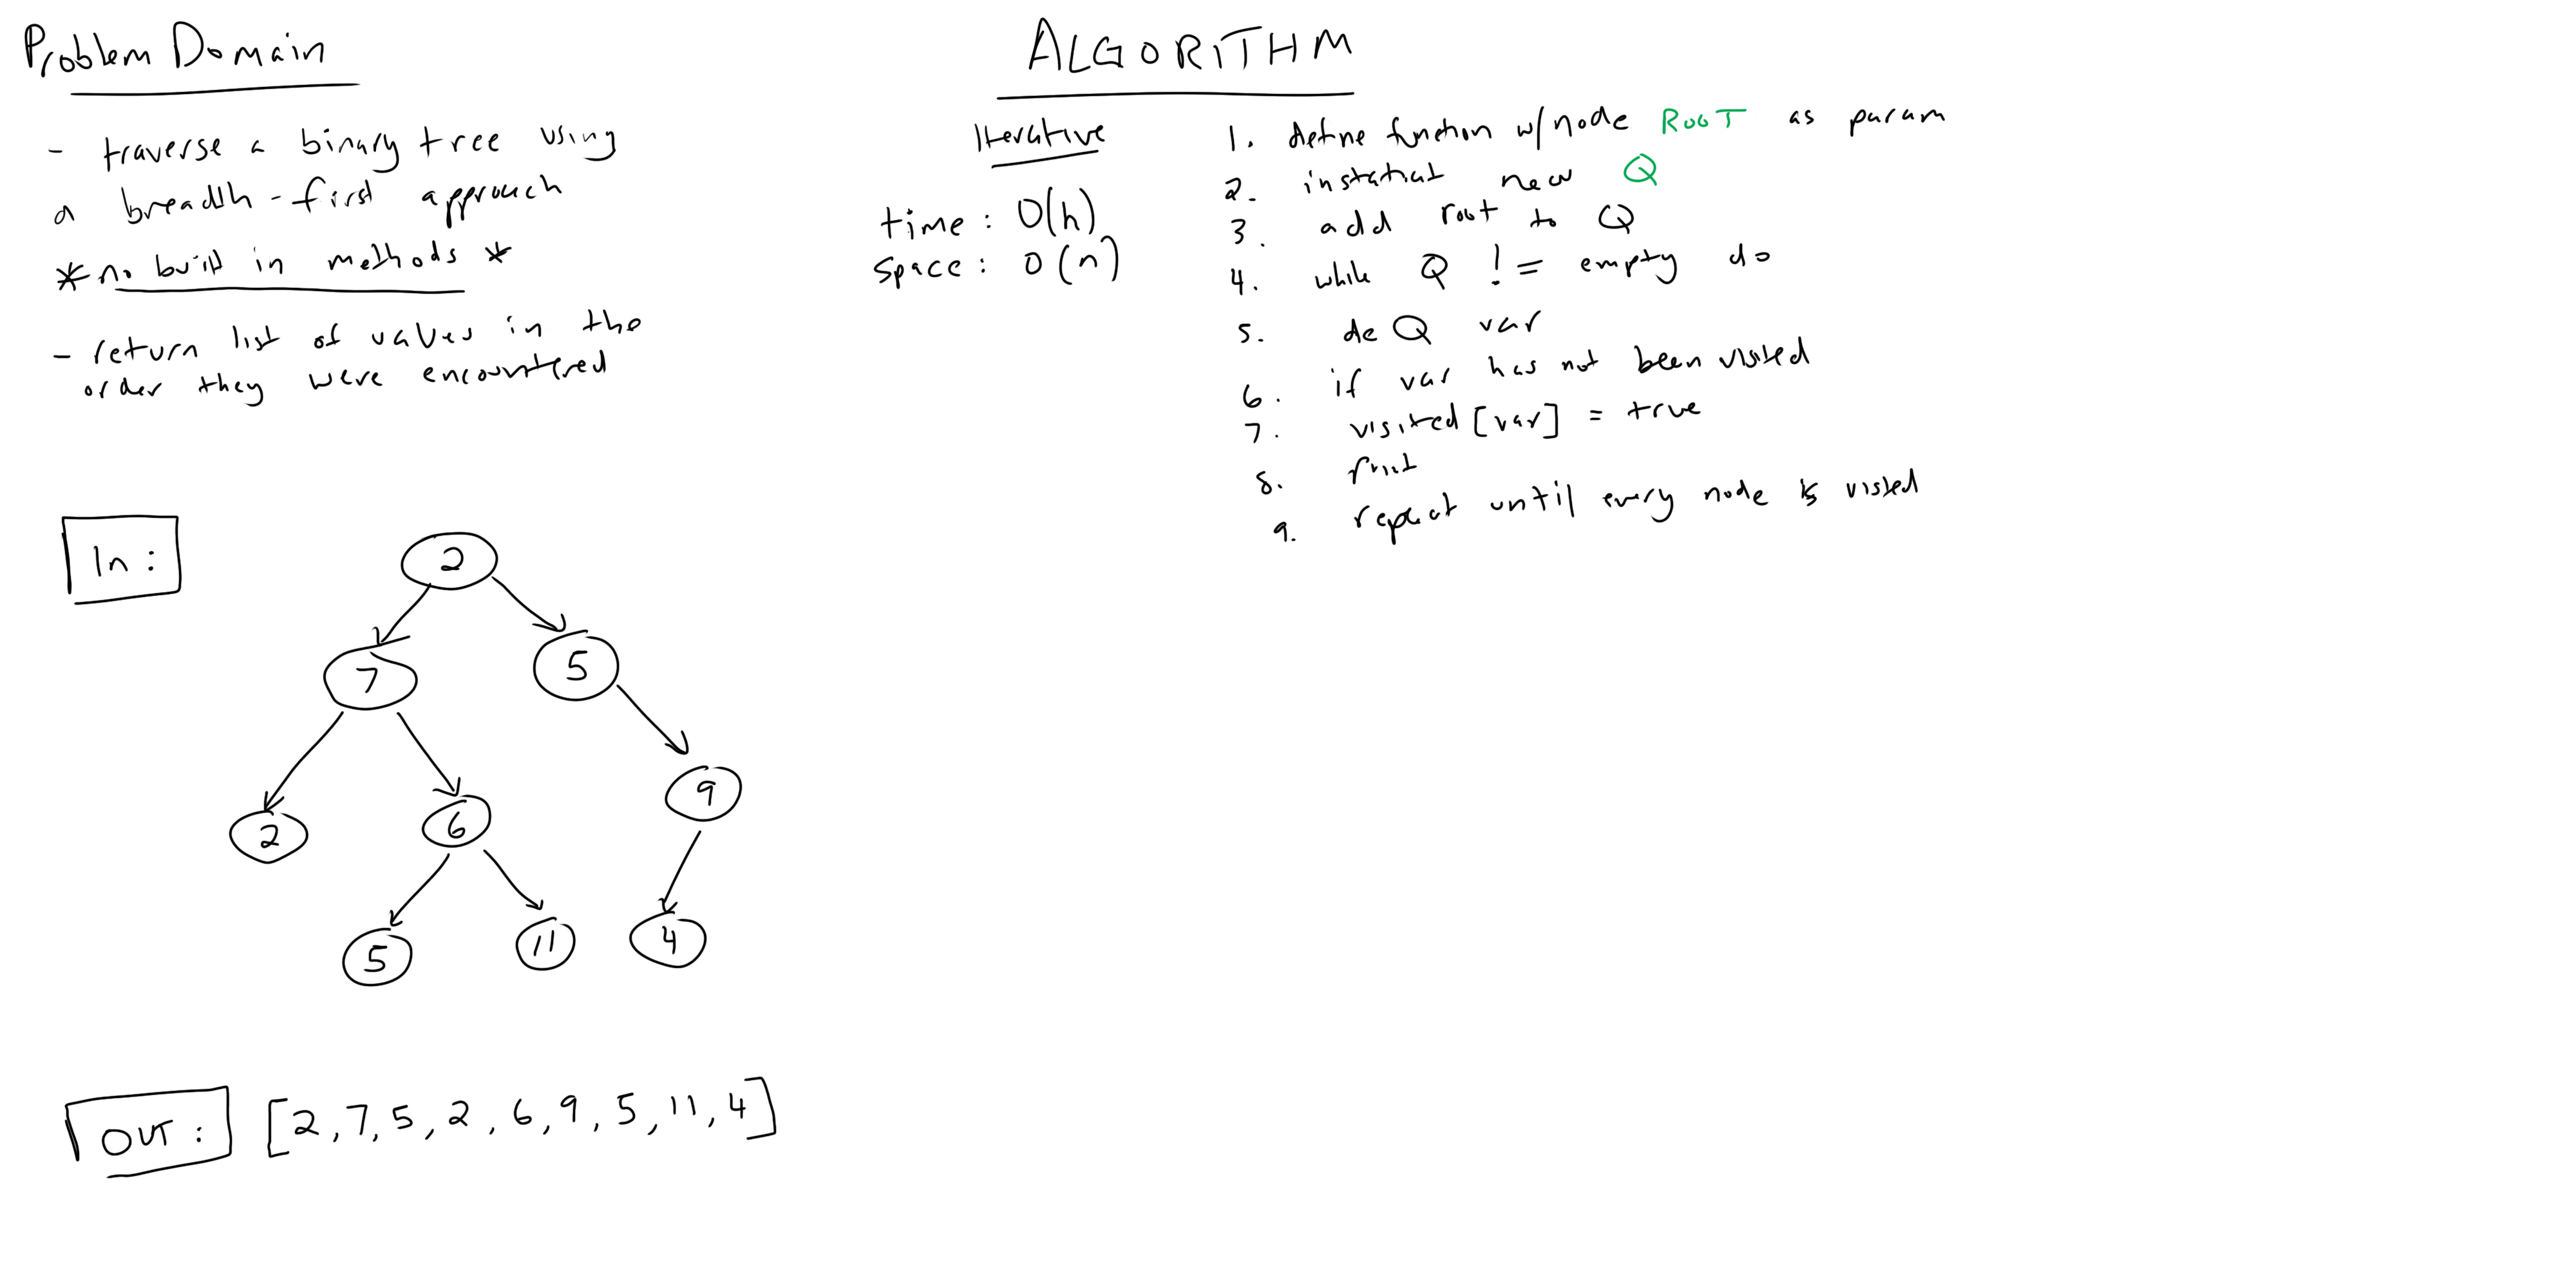 Problem Domain
- traverse a binary tree using
a breadth-first approach
* no built in methods *
- return list of values in the
order they were encountered
In:
2
7
5
2
6
9
5
11
4
OUT: [2,7,5,2,6,9,5,11,4]
ALGORITHM
Iterative
time: O(h)
Space: O(n)
1. define function w/node ROOT as param
2. instatiat new Q
3. add root to Q
4. while Q != empty do
5. de Q var
6. if var has not been visited
7. visited [var] = true
8. print
9. repeat until every node is visted